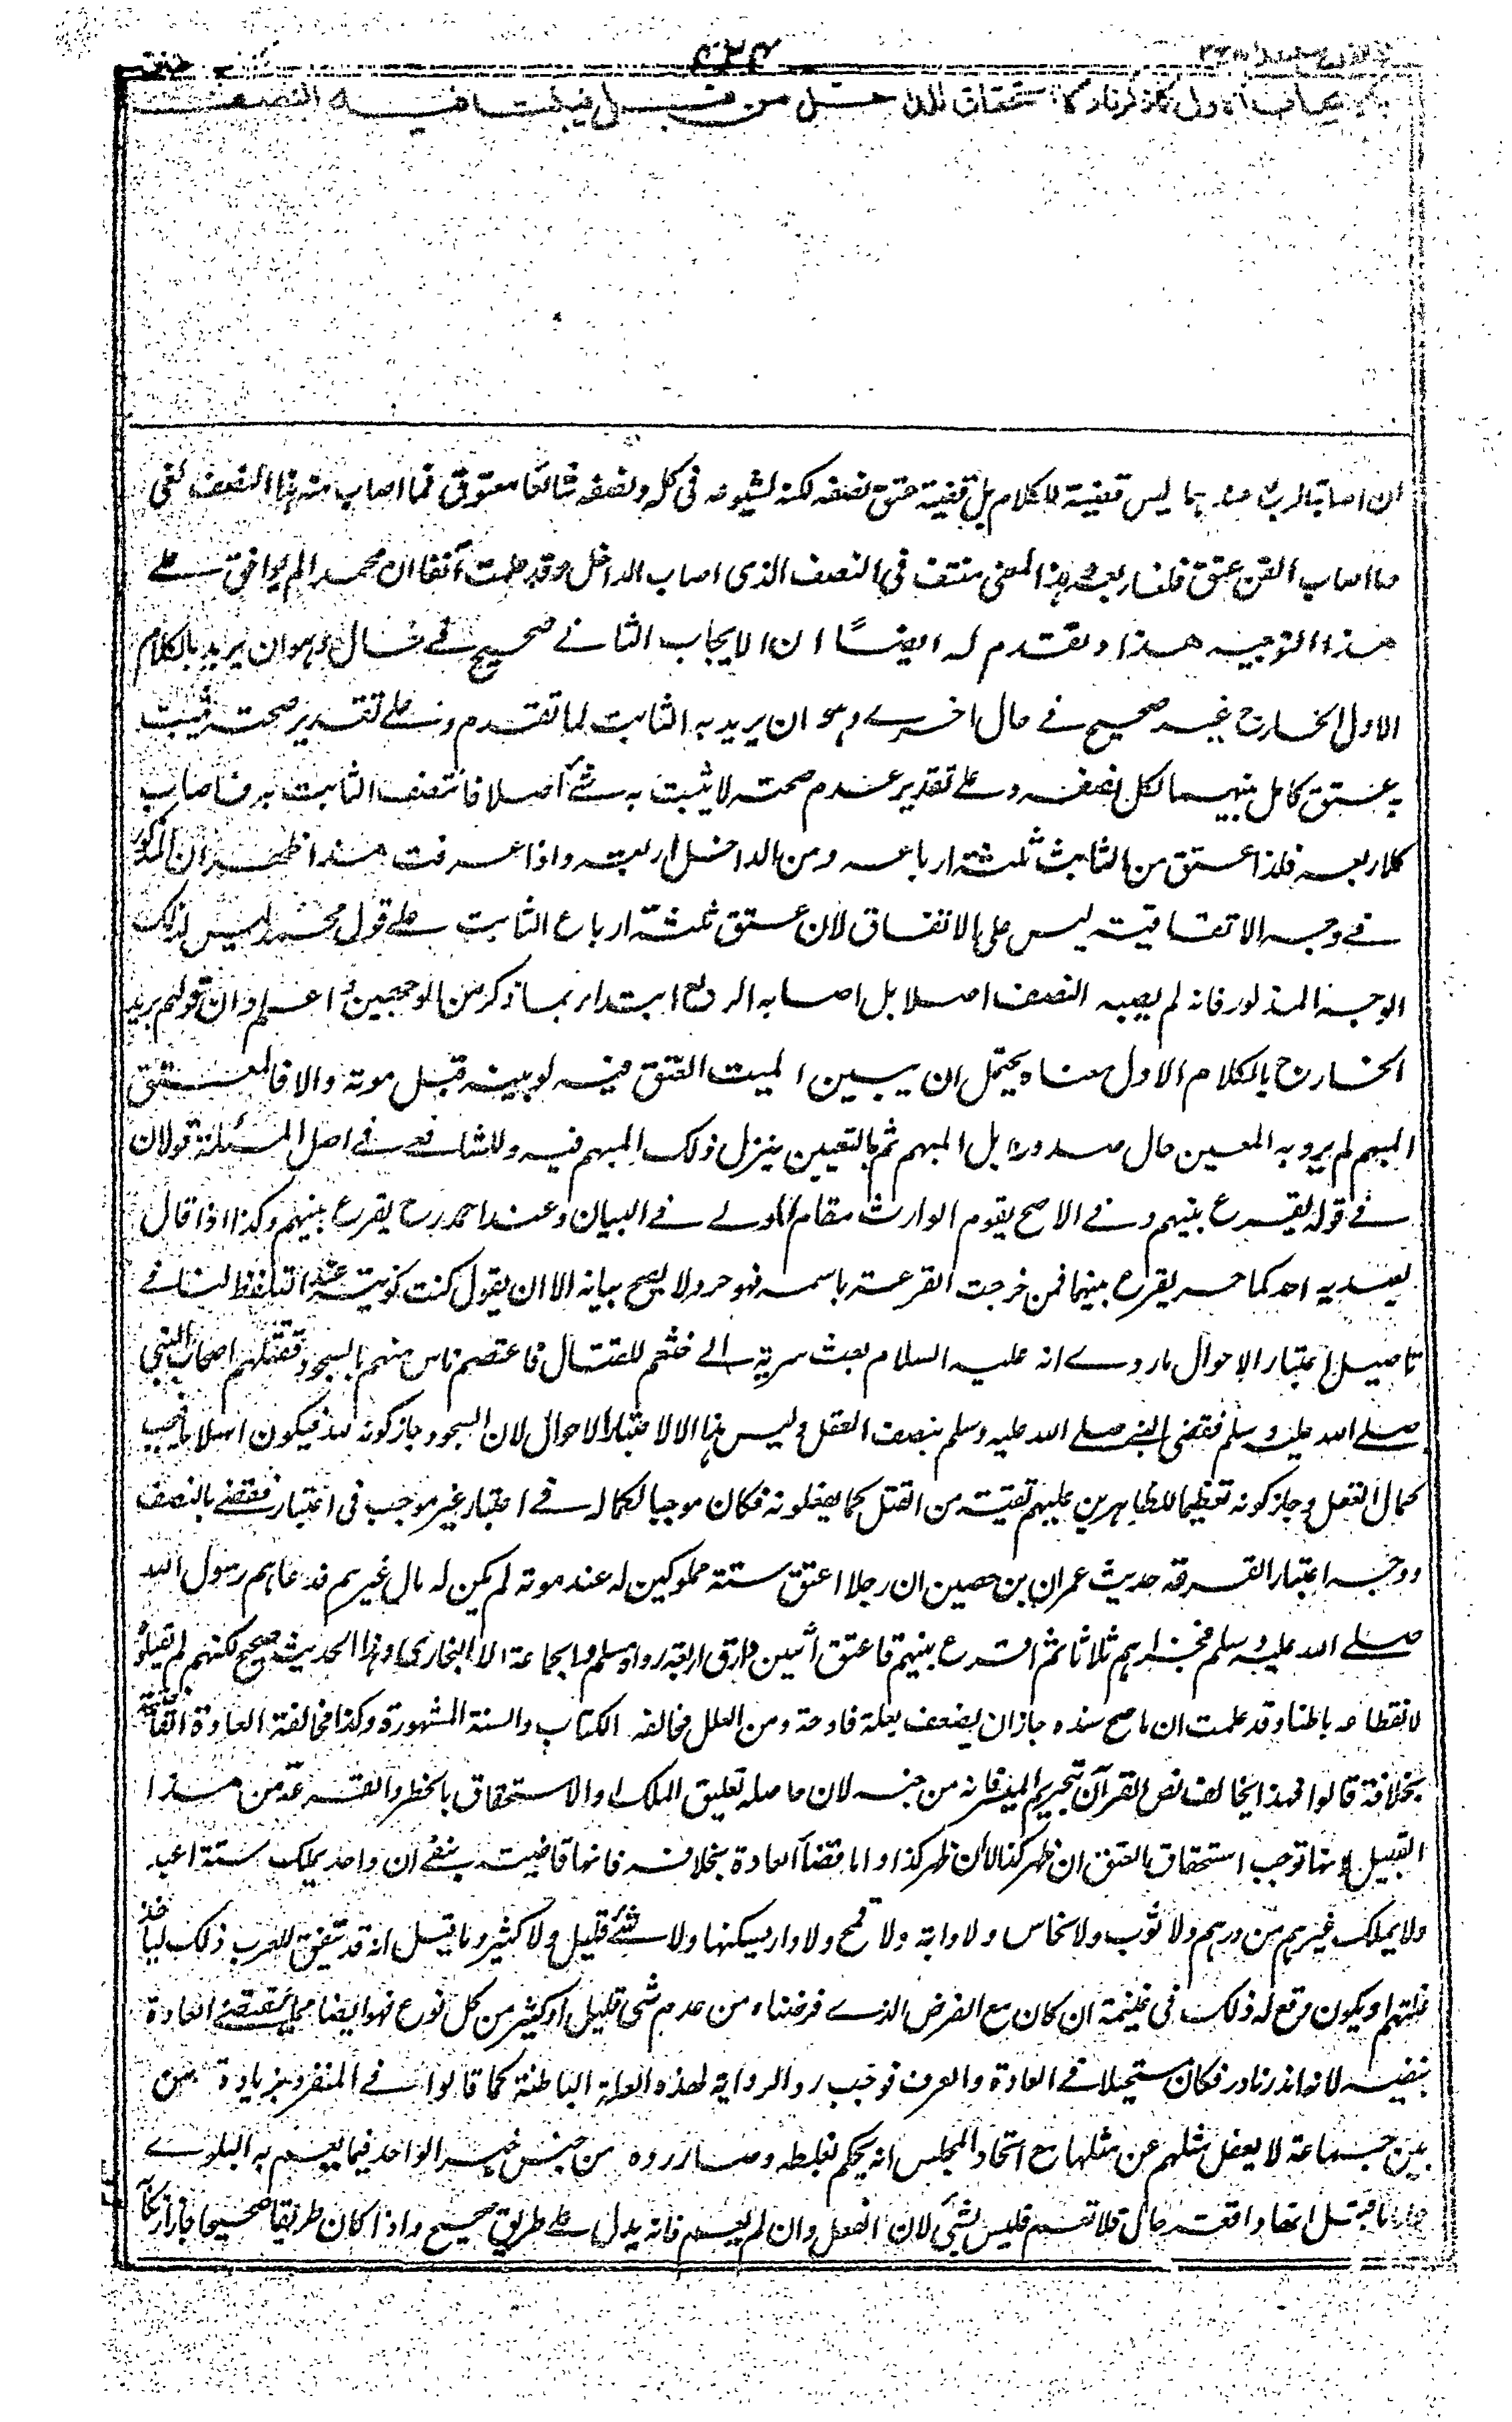 ٤٣٤
ان اصابة الربع منه بها ليس قضية للكلام بل قضية عتق نصفه لكنه لشيوعه فى كل ونصفه شائعا معتوق فما اصاب منه هذا النصف لغى
وما اصاب القن عتق فلغا ربعه وهذا المعنى منتف فى النصف الذى اصاب الداخل وقد علمت آنفا ان محمدا لم يوافق على
هذا التوجيه هذا وتقدم له ايضًا ان الايجاب الثانى صحيح فى حال وهو ان يريد بالكلام
الاول الخارج غير صحيح فى حال اخرى وهو ان يريد به الثابت لما تقدم وعلى تقدير صحته يثبت
به عتق كامل بينهما لكل نصفه وعلى تقدير عدم صحته لا يثبت به شئ اصلا فانتصف الثابت به فاصاب
كلا ربعه فلذا عتق من الثابت ثلثة ارباعه ومن الداخل ربعه واذا عرفت هذا ظهر ان المذكور
فى وجه الاتفاقية ليس على الاتفاق لان عتق ثلثة ارباع الثابت على قول محمد ليس لذلك
الوجه المذكور فانه لم يصبه النصف اصلا بل اصابه الربع ابتداء بما ذكر من الوجهين واعلم ان قولهم يريد
الخارج بالكلام الاول معناه يحتمل ان يبين الميت العتق فيه لو بينه قبل موته والا فالمعتق
المبهم لم يرد به المعين حال صدوره بل المبهم ثم بالتعيين ينزل ذلك المبهم فيه وللشافعى فى اصل المسئلة قولان
فى قول يقرع بينهم وفى الاصح يقوم الوارث مقام المولى فى البيان وعند احمد رح يقرع بينهم وكذا اذا قال
لعبديه احدكما حر يقرع بينهما فمن خرجت القرعة باسمه فهو حر ولا يصح بيانه الا ان يقول كنت نويته عند التلفظ لنا فى
تاصيل اعتبار الاحوال ما روى انه عليه السلام بعث سرية الى خثعم للقتال فاعتصم ناس منهم بالسجود فقتلهم اصحاب النبى
صلى الله عليه وسلم فقضى النبى صلى الله عليه وسلم بنصف العقل وليس هذا الا لاعتبار الاحوال لان السجود جاز كونه لله فيكون اسلاما يجب
كمال العقل وجاز كونه تعظيما للظاهرين عليهم تقية من القتل كما يفعلونه فكان موجبا لكماله فى اعتبار غير موجب فى اعتبار فقضى بالنصف
ووجه اعتبار القرعة حديث عمران بن حصين ان رجلا اعتق ستة مملوكين له عند موته لم يكن له مال غيرهم فدعاهم رسول الله
صلى الله عليه وسلم فجزاهم ثلاثا ثم اقرع بينهم فاعتق اثنين وارق اربعة رواه مسلم والجماعة الا البخارى وهذا الحديث صحيح لكنهم لم يقبلوه
لانقطاعه باطنا وقد علمت ان ما صح سنده جاز ان يضعف بعلة قادحة ومن العلل مخالفة الكتاب والسنة المشهورة وكذا مخالفة العادة القاضية
بخلافه قالوا فهذا يخالف نص القرآن بتحريم الميسر فانه من جنسه لان حاصله تعليق الملك او الاستحقاق بالخطر والقرعة من هذا
القبيل لانها توجب استحقاق العتق ان ظهر كذا لا ان ظهر كذا واما قضاء العادة بخلافه فانها قاضية بنفى ان واحد يملك ستة اعبد
ولا يملك غيرهم من درهم ولا ثوب ولا نحاس ولا دابة ولا قمح ولا دار يسكنها ولا شئ قليل ولا كثير وما قيل انه قد يتفق للعرب ذلك
او يكون وقع له ذلك فى غنيمة ان كان مع الفرض الذى فرضناه من عدم شئ قليل او كثير من كل نوع فهو ايضا مما تقضى العادة
بنفيه لانه نادر فكان مستحيلا فى العادة والعرف فوجب رد الرواية لهذه العلة الباطنة كما قالوا فى المنفرد بزيادة من
بين جماعة لا يغفل مثلهم عن مثلها مع اتحاد المجلس انه يحكم بغلطه وصار رده من جنس خبر الواحد فيما يعم به البلوى
واما قيل انها واقعة حال فلا تعم فليس بشئ لان الفعل وان لم يعم فانه يدل على طريق صحيح واذا كان طريقا صحيحا جاز